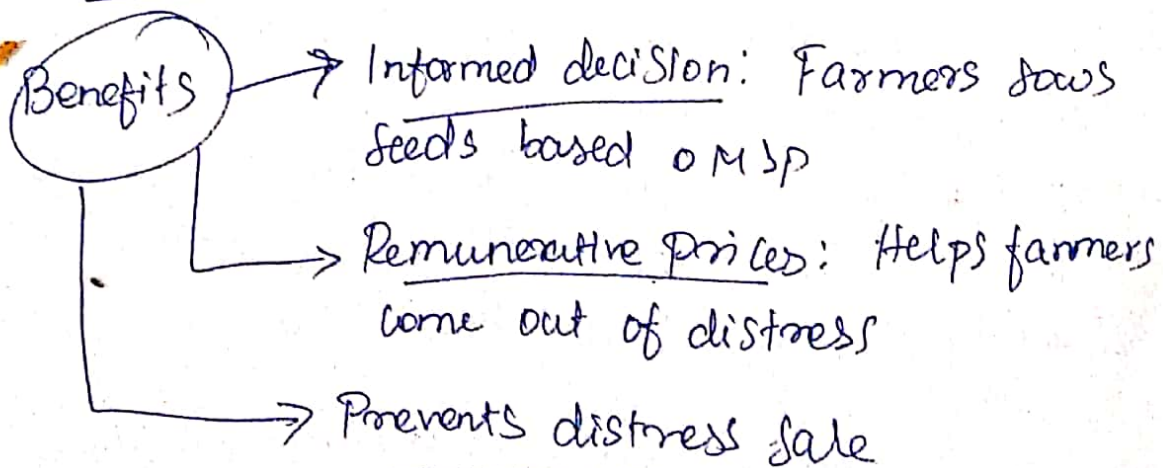 Benefits
Informed decision: Farmers sows
seeds based o MSP
Remunerative Prices: Helps farmers
come out of distress
Prevents distress sale